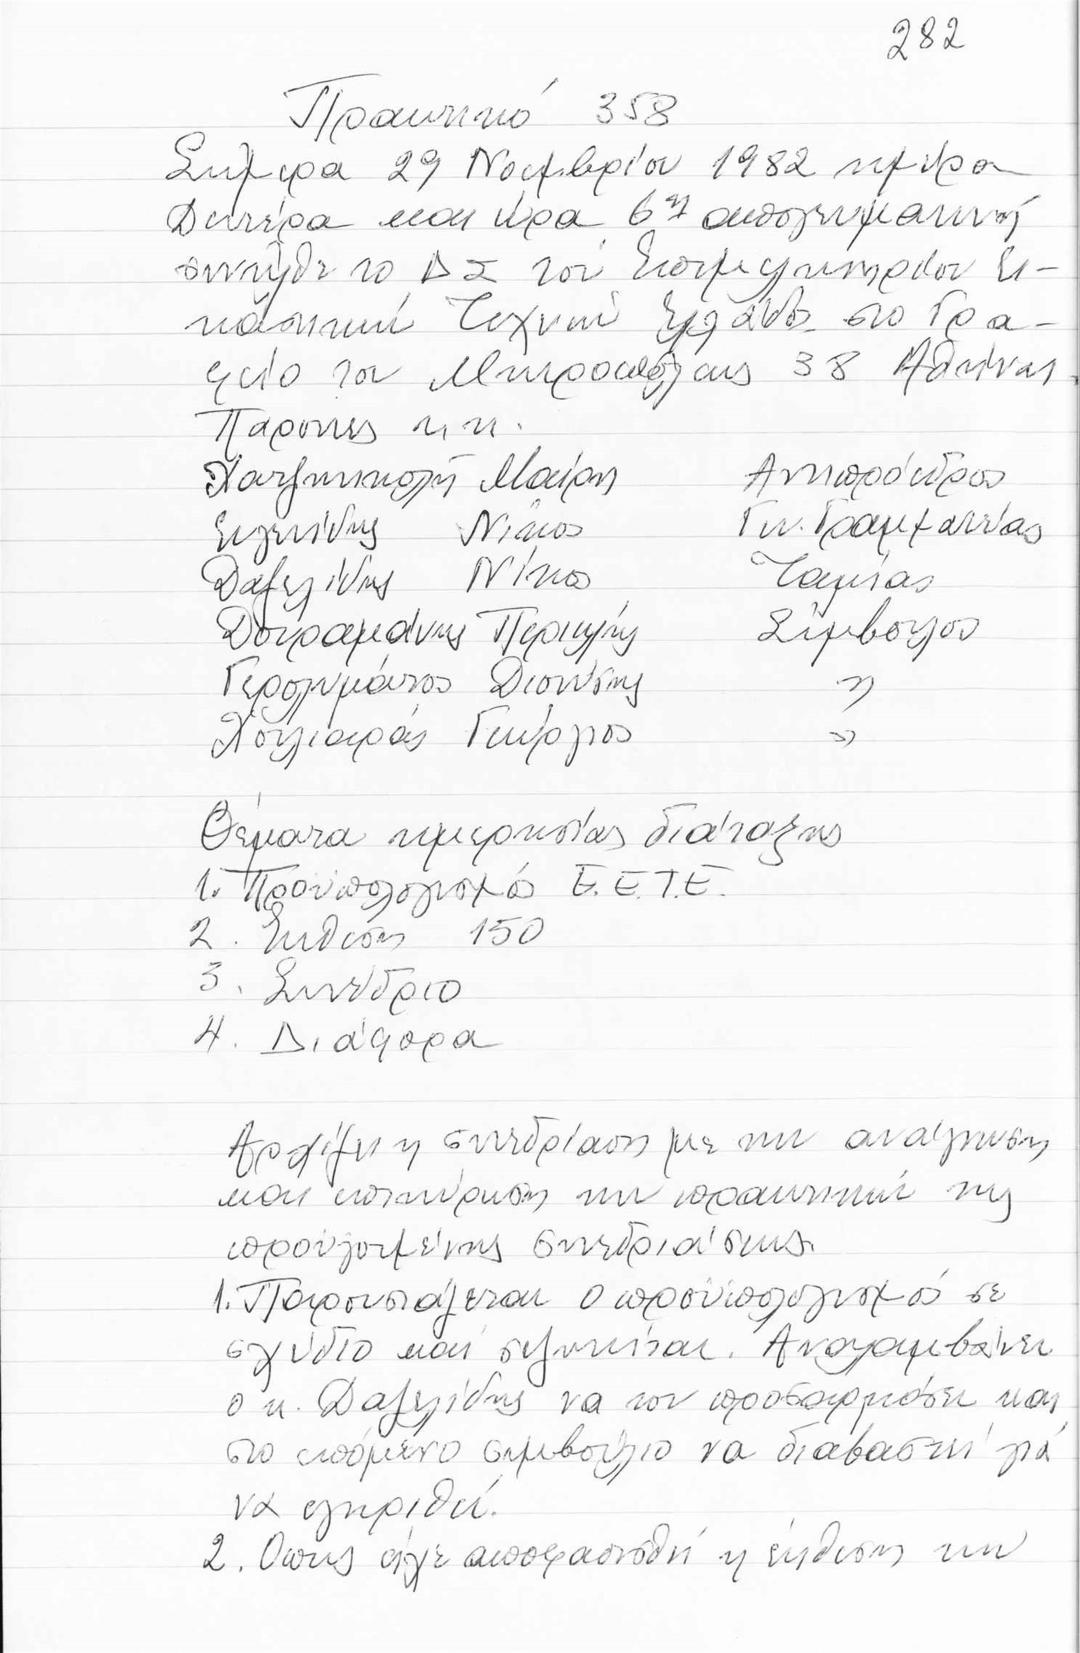 282
Πρακτικό 358
Σήμερα 29 Νοεμβρίου 1982 ημέρα
Δευτέρα και ώρα 6η απογευματινή
συνήλθε το ΔΣ του Επιμελητηρίου Ει-
καστικών Τεχνών Ελλάδος στο Γρα-
φείο του Μητροπόλεως 38 Αθήνας.
Παρόντες κ.κ.
Χατζηνικολή Μαίρη Αντιπρόεδρος
Νίκος Γεν. Γραμματέας
Δαξελίδης Νίκος Ταμίας
Ντουραμάνης Περικλής Σύμβουλος
Γερολυμάτος Διονύσης "
Χουλιαράς Γεώργιος "
Θέματα ημερησίας διάταξης
1. Προϋπολογισμός Ε.Ε.Τ.Ε.
2. Έκθεση 150
3. Συνέδριο
4. Διάφορα
Αρχίζει η συνεδρίαση με την ανάγνωση
και επικύρωση των πρακτικών της
προηγουμένης συνεδριάσεως.
1. Παρουσιάζεται ο προϋπολογισμός σε
σχέδιο και συζητείται. Αναλαμβάνει
ο κ. Δαξελίδης να τον προσαρμόσει και
στο επόμενο συμβούλιο να διαβαστεί γιά
να εγκριθεί.
2. Οπως είχε αποφασισθεί η έκθεση των